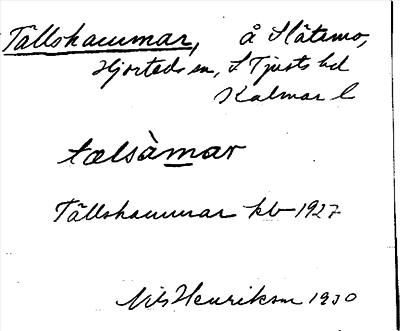 Tällshammar, å Slätmo,
Hjorteds sn, S Tjusts hd
Kalmar l
tælsàmar
Tällshammar kb 1927
Nils Henrikson 1930